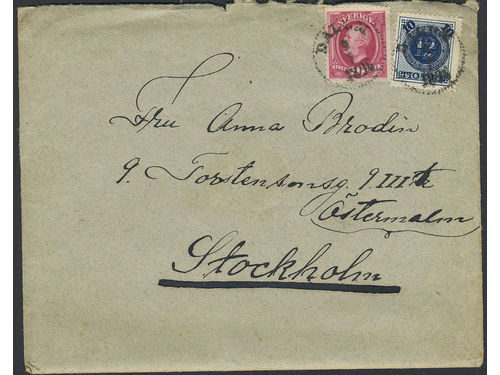 SVERIGE
10 10
12
Fru Anna Brodin
9. Torstensonsg. 9. III tr
Östermalm
Stockholm